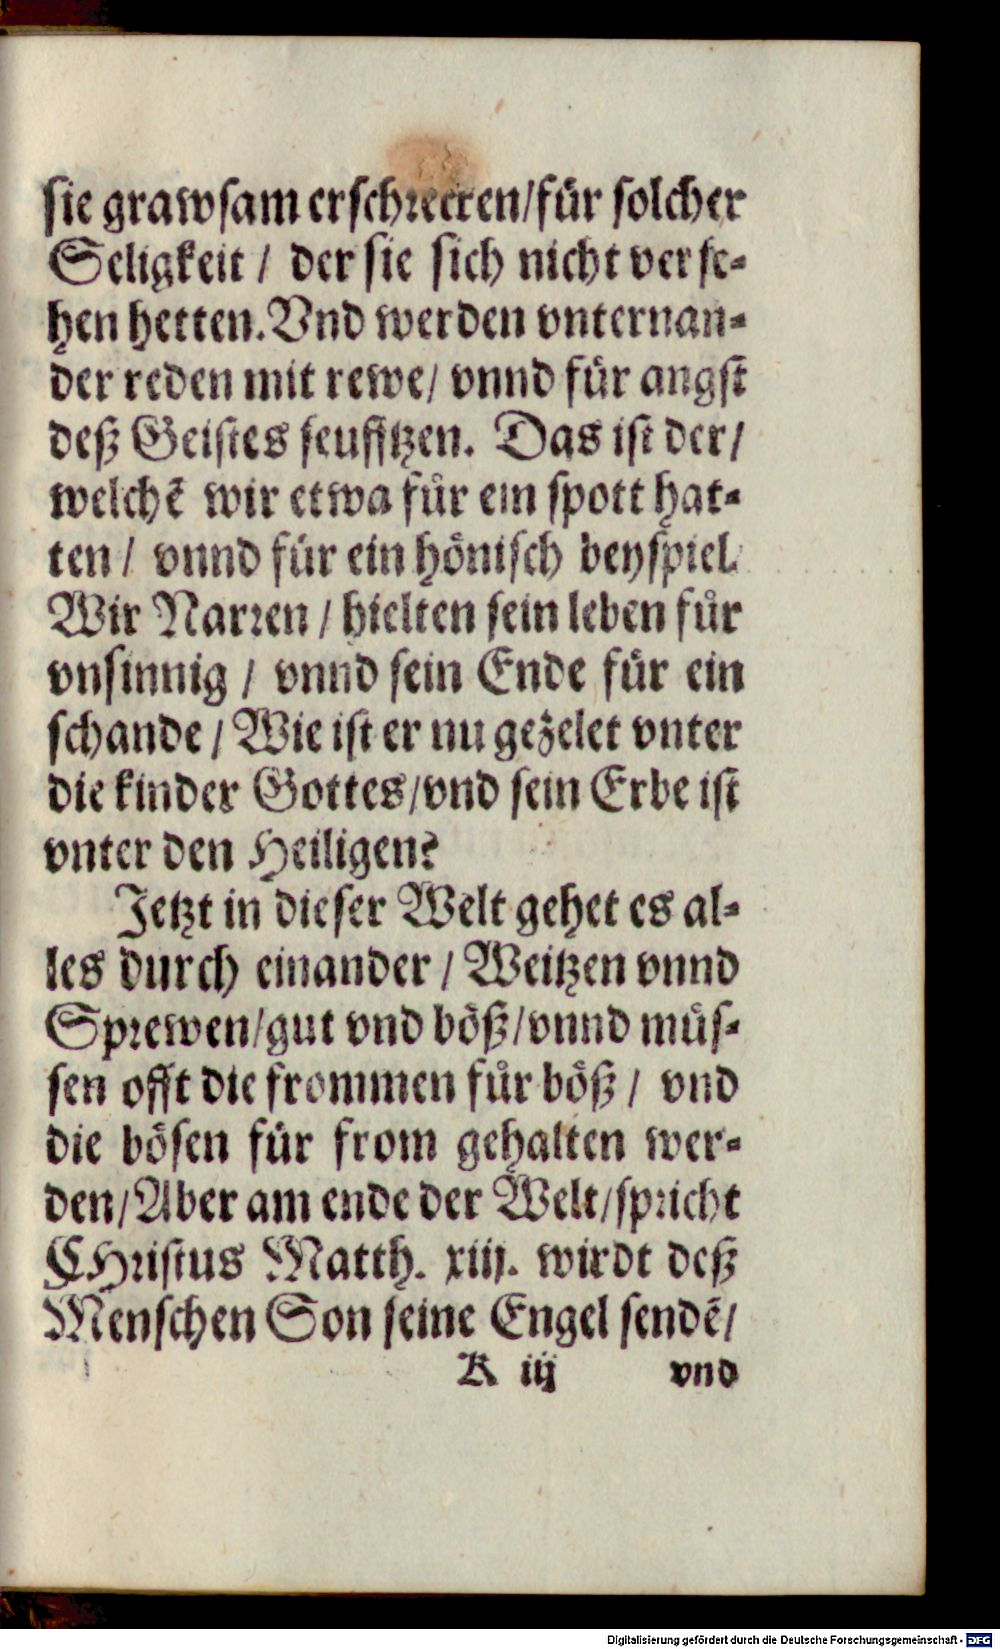 sie grawsam erschrecken/für solcher
Seligkeit / der sie sich nicht verse-
hen hetten. Vnd werden vnternan-
der reden mit rewe/ vnnd für angst
deß Geistes seufftzen. Das ist der/
welchẽ wir etwa für ein spott hat-
ten / vnnd für ein hönisch beyspiel.
Wir Narren / hielten sein leben für
vnsinnig / vnnd sein Ende für ein
schande / Wie ist er nu gezelet vnter
die kinder Gottes/vnd sein Erbe ist
vnter den Heiligen?
Jetzt in dieser Welt gehet es al-
les durch einander / Weitzen vnnd
Sprewen/gut vnd böß/vnnd müs-
sen offt die frommen für böß / vnd
die bösen für from gehalten wer-
den/Aber am ende der Welt/spricht
CHristus Matth. xiij. wirdt deß
Menschen Son seine Engel sendẽ/
K iij vnd
Digitalisierung gefördert durch die Deutsche Forschungsgemeinschaft - DFG